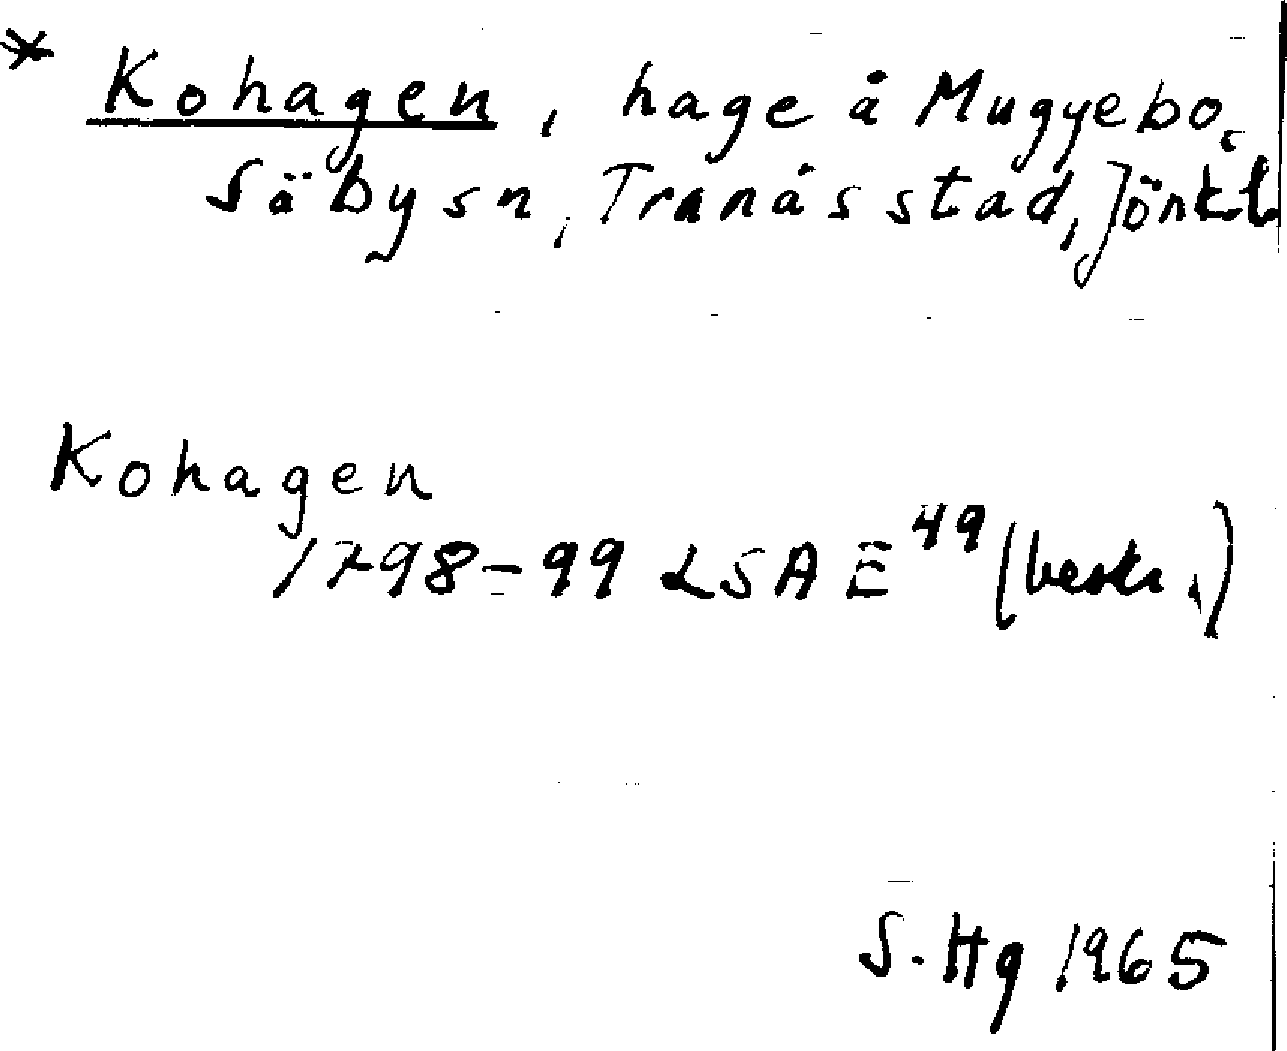 * Kohagen, hage å Mugyebo,
Säby sn, Tranås stad, Jönk.l.
Kohagen
1798-99 LSA E 49 (beskr.)
S. Hg 1965